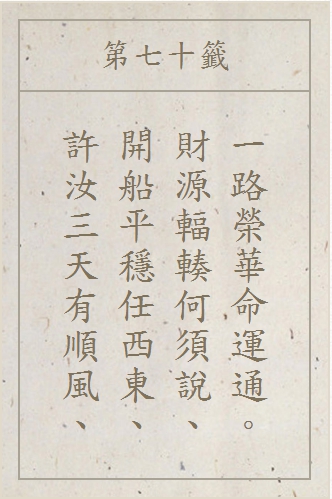 第七十籤
許汝三天有順風、
開船平穩任西東、
財源輻輳何須說、
一路榮華命運通。